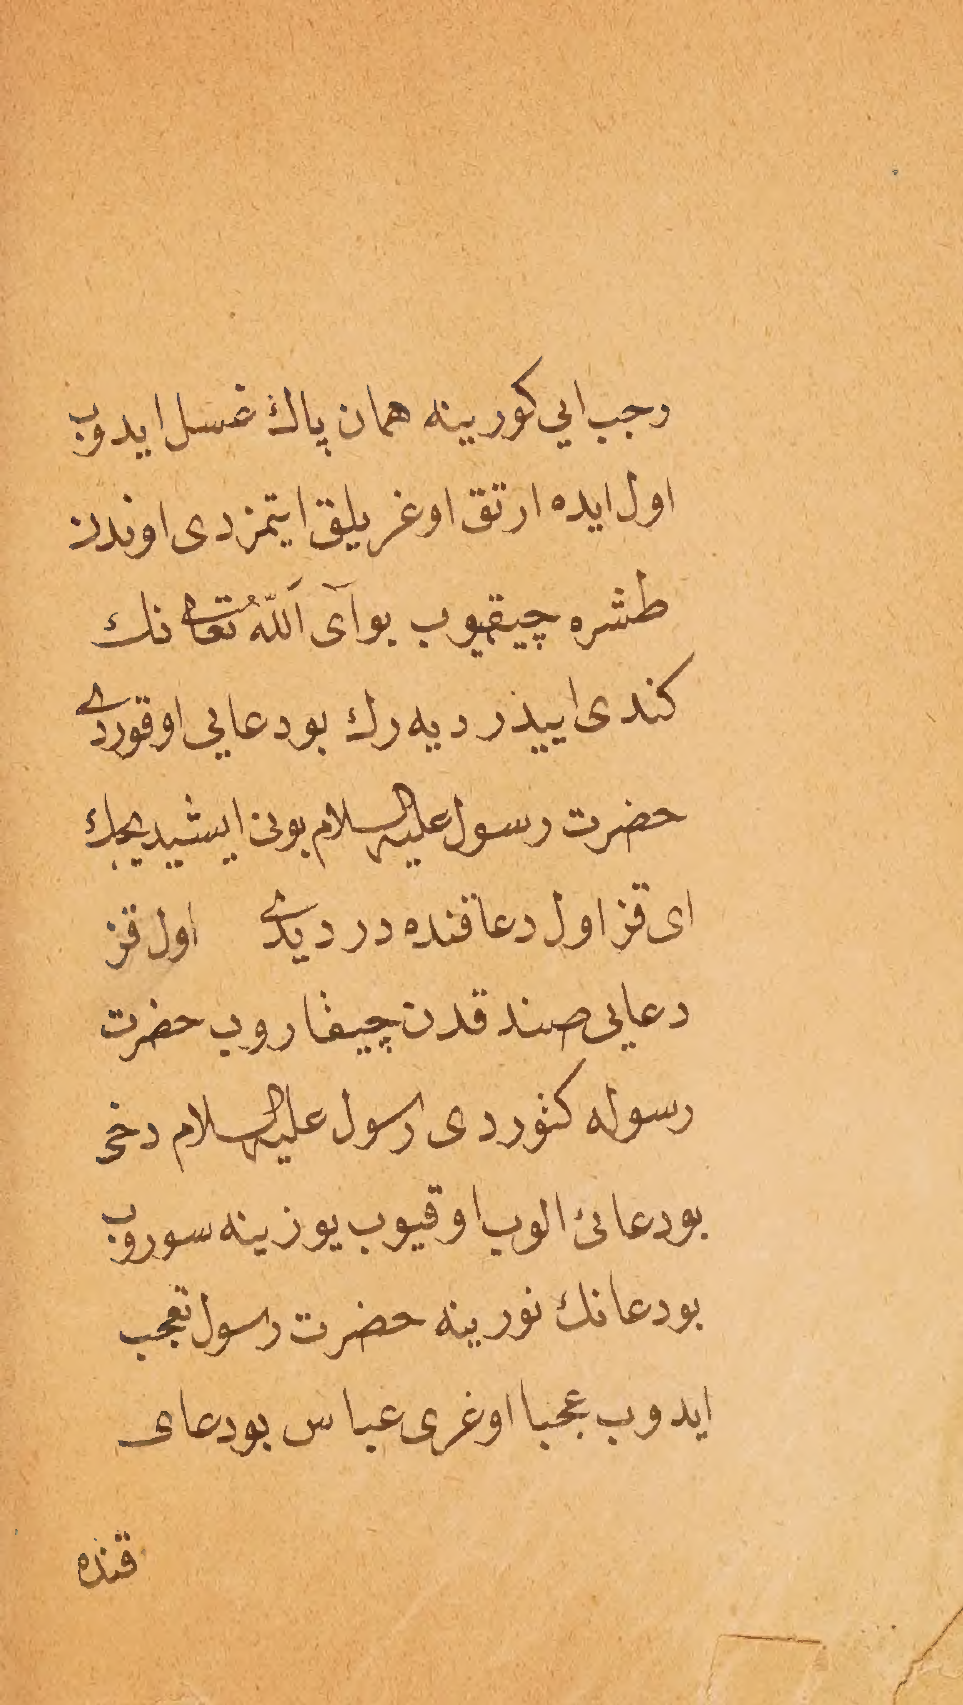 رجب ايى كورينه همان پاك غسل ايدوب
اول ايده ارتق اوغريلق ايتمزدى اوندن
طشره چيقميوب بو آى اَللّٰهُ تعالى نك
كندى اييدر ديه رك بو دعايى اوقوردى
حضرت رسول عليه السلام بونى ايشيديجك
اى قز اول دعا قنده در ديدى اول قز
دعايى صندقدن چيقاروب حضرت
رسوله كتوردى رسول عليه السلام دخى
بو دعائى الوب اوقيوب يوزينه سوروب
بو دعانك نورينه حضرت رسول تعجب
ايدوب عجبا اوغرى عباس بو دعاى
قنده